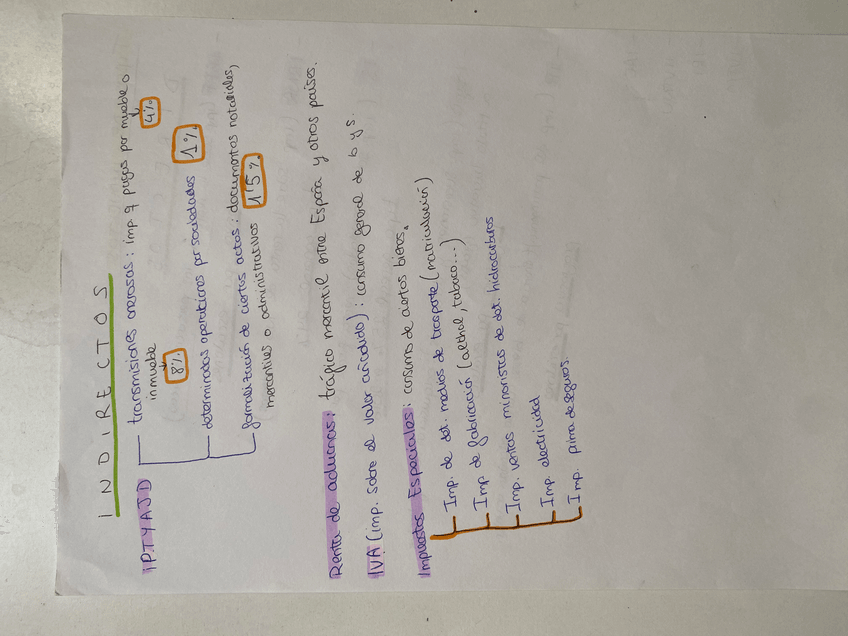 INDIRECTOS
IPTYAJD
transmisiones onerosas: imp. q pagas por mueble o
4%
inmueble
8%
determinadas operaciones por sociedades 1%
formalización de ciertos actos: documentos notariales,
mercantiles o administrativos 1'5%
Renta de aduanas: tráfico mercantil entre España y otros países.
IVA (imp. sobre el valor añadido): consumo general de b y s.
Impuestos Especiales: consumo de ciertos bienes.
Imp. de det. medios de trasporte (matriculación)
Imp de fabricación (alcohol, tabaco...)
Imp. ventas minoristas de det. hidrocarburos
Imp. electricidad
Imp. prima de seguros.